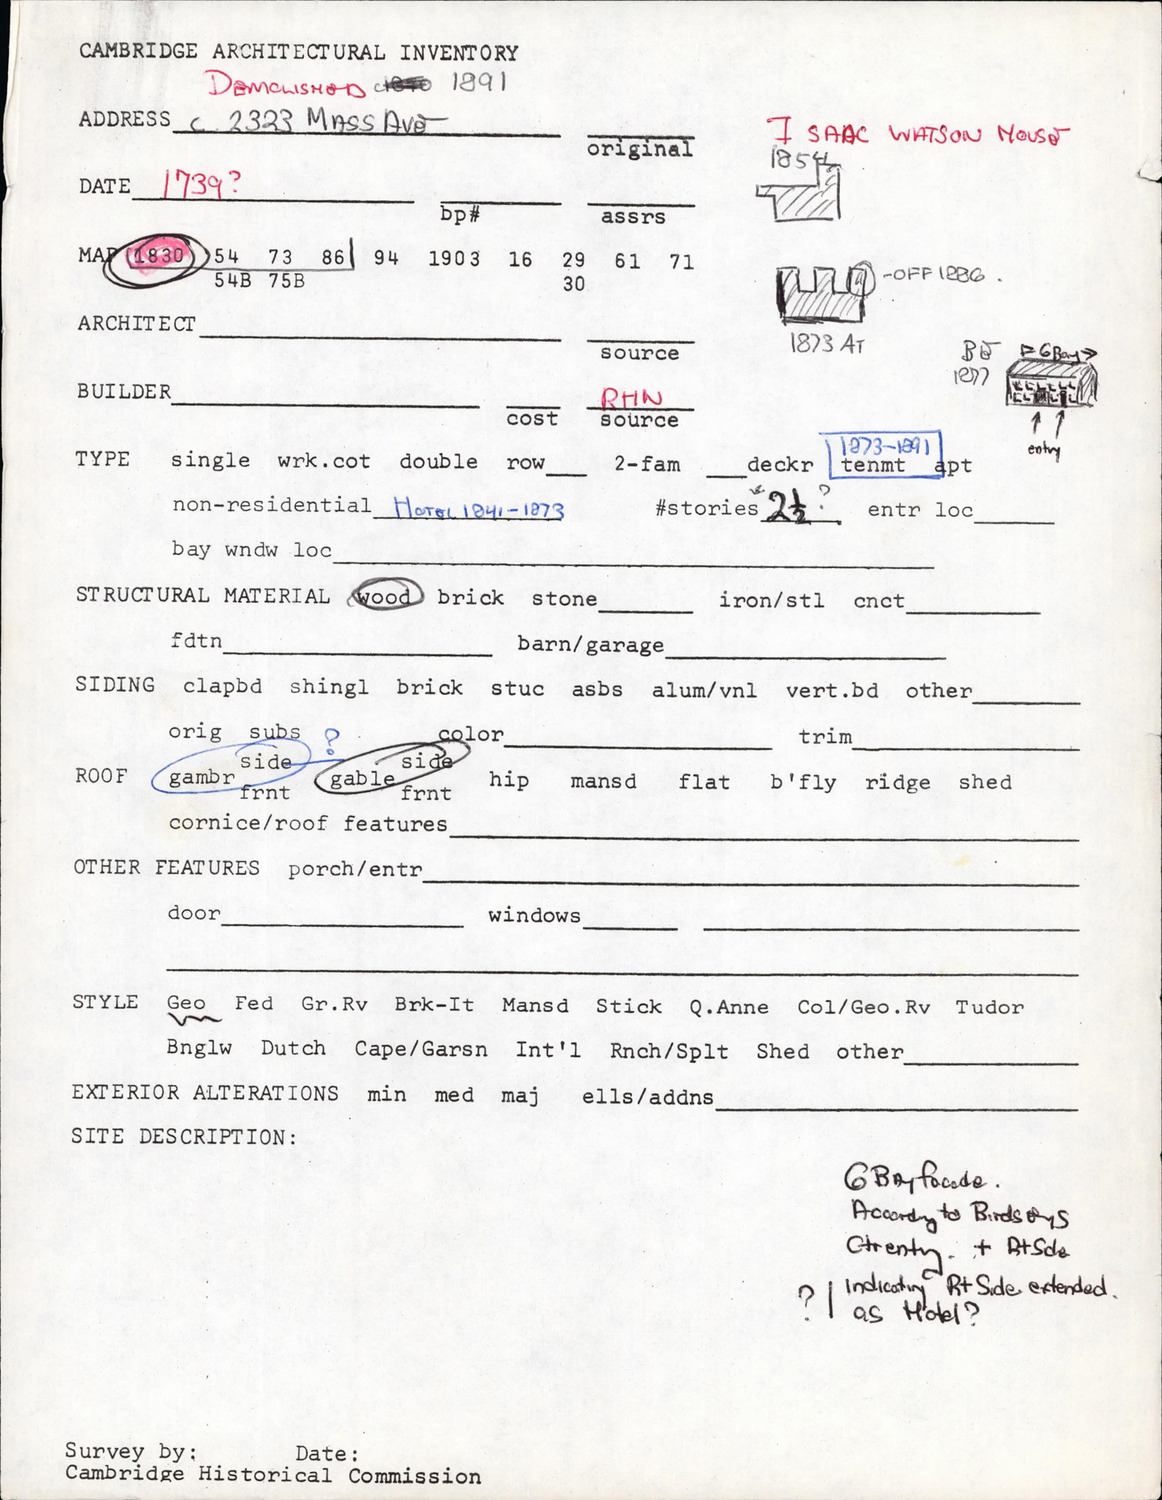 CAMBRIDGE ARCHITECTURAL INVENTORY
DEMOLISHED 1891
ADDRESS c. 2323 MASS AVE
original
ISAAC WATSON HOUSE
1854
DATE 1739?
bp# assrs
MAP 1830 54 73 86 94 1903 16 29 61 71
54B 75B 30
-OFF 1886.
1873 AT
ARCHITECT
source
BE 6 Bay
1877
BUILDER RHN
cost source
entry
1873-1891
TYPE single wrk.cot double row 2-fam deckr tenmt apt
non-residential HOTEL 1841-1873 #stories 2½ ? entr loc
bay wndw loc
STRUCTURAL MATERIAL wood brick stone iron/stl cnct
fdtn barn/garage
SIDING clapbd shingl brick stuc asbs alum/vnl vert.bd other
orig subs ? color trim
side side
ROOF gambr gable hip mansd flat b'fly ridge shed
frnt frnt
cornice/roof features
OTHER FEATURES porch/entr
door windows
STYLE Geo Fed Gr.Rv Brk-It Mansd Stick Q.Anne Col/Geo.Rv Tudor
Bnglw Dutch Cape/Garsn Int'l Rnch/Splt Shed other
EXTERIOR ALTERATIONS min med maj ells/addns
SITE DESCRIPTION:
6 Bay facade.
According to Birds eys
Ctr entry. + Rt Side
? Indicating Rt Side extended.
as Hotel?
Survey by: Date:
Cambridge Historical Commission